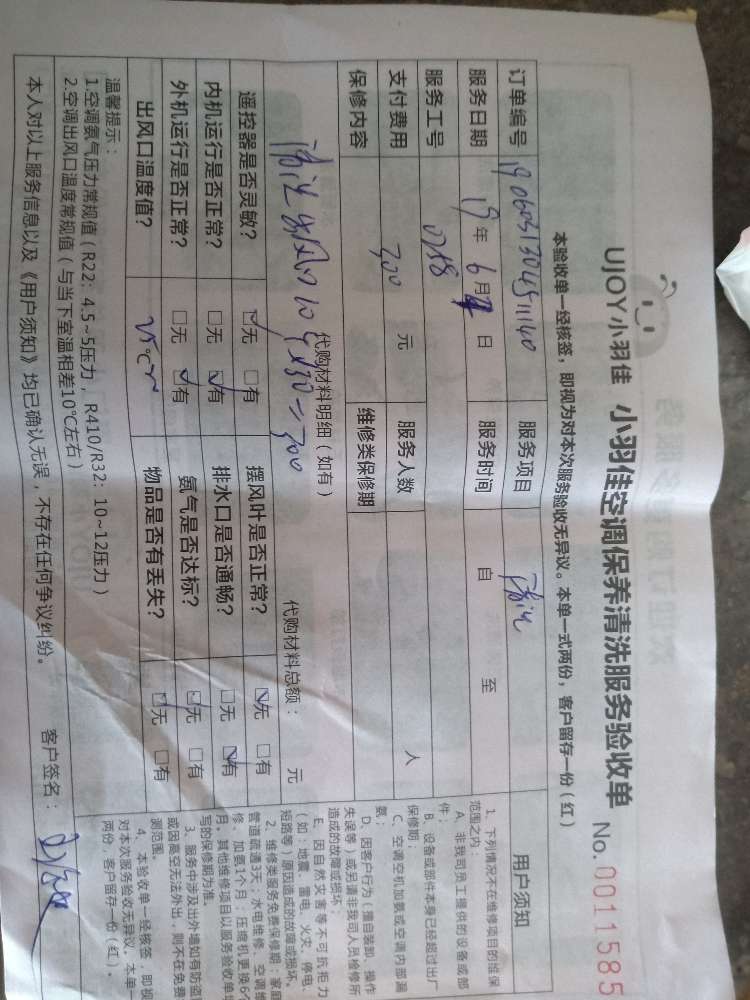 UJOY小羽佳 小羽佳空调保养清洗服务验收单 No. 0011585
本验收单一经核签，即视为对本次服务验收无异议。本单一式两份，客户留存一份（红）
订单编号 服务项目 清洗
服务日期 19年6月 日 服务时间 自 至
服务工号 0758 服务人数 人
支付费用 300 元 维修类保修期
保修内容
代购材料明细（如有） 代购材料总额： 元
清洗出风口10个×30=300
遥控器是否灵敏？ ☑无 □有 摆风叶是否正常？ ☑无 □有
内机运行是否正常？ □无 ☑有 排水口是否通畅？ □无 ☑有
外机运行是否正常？ □无 ☑有 氨气是否达标？ ☑无 □有
出风口温度值？ 25℃ 物品是否有丢失？ ☑无 □有
温馨提示：
1.空调氨气压力常规值（R22：4.5~5压力，R410/R32：10~12压力）
2.空调出风口温度常规值（与当下室温相差10℃左右）
本人对以上服务信息以及《用户须知》均已确认无误，不存在任何争议纠纷。 客户签名：
用户须知
1、下列情况不在维修项目的维保
范围之内：
A、非我司员工提供的设备或部
件；
B、设备或部件本身已经超过出厂
保修期；
C、空调空机加氨或空调内部漏
氨；
D、因客户行为（擅自装卸、操作
失误等）或另请非我司人员检修所
造成的故障或损坏；
E、因自然灾害等不可抗拒力
（如：地震、雷电、火灾、停电、
短路等）原因造成的故障或损坏。
2、维修类服务免费保修期：家庭
管道疏通3天；水电维修、空调维
修、加氨1个月；压缩机更换6个
月。其他维修项目以服务验收单填
写的保修期为准。
3、服务中涉及出外墙如有防盗
或因高空无法外出，则不在免费
测范围。
4、本验收单一经核签，即视
对本次服务验收无异议。本单一
两份，客户留存一份（红）。